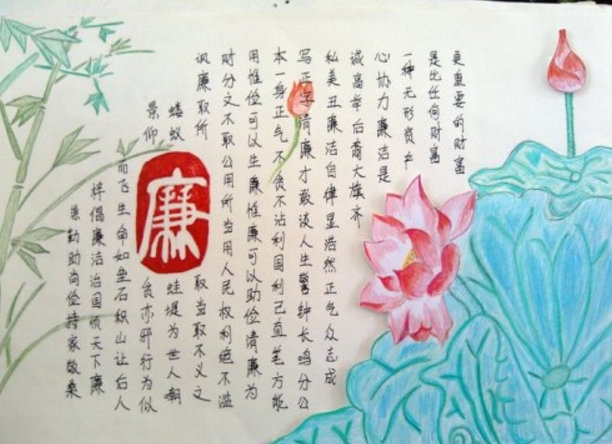 更重要的财富
是比任何财富
一种无形资产
心协力廉洁是
诚高举大旗齐
私美丑廉洁自律显浩然正气众志成
写正字清廉才敢谈人生警钟长鸣分公
本一身正气不贪不沾利国利己直笔方能
用惟俭可以生廉惟廉可以助俭清廉为
财分文不取公用所当用人民权利绝不滥
讽廉取所取当取不义之
蝼蚁堤为世人嘲
景仰贪亦邪行为似
而飞生命如垒石积山让后人
梓倡廉洁治国顺天下廉
勤助尚俭持家敬桑
廉